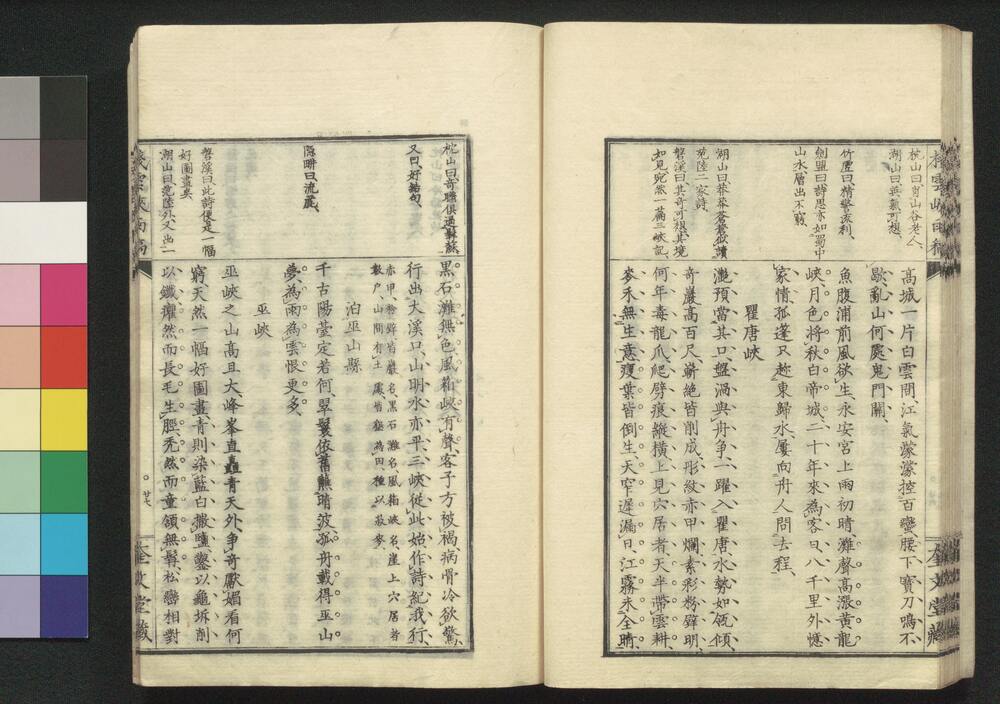 桟雲峡雨稿
枕山曰、剪山谷老人、
湖山曰、英氣可想、
竹磎曰、精警淡利、
劍盟曰、詩思亦如蜀中
山水層出不窮、
湖山曰、莽莽蒼蒼、似讀
范陸二家詩、
磐溪曰、其奇可想、其境
如見、宛然一篇三峽記、
高城一片白雲間、江氣濛濛控百蠻、腰下寶刀鳴不
歇、亂山何處鬼門關、
魚腹浦前風欲生、永安宮上雨初晴、灘聲高漲黃龍
峽、月色將秋白帝城、二十年來為客日、八千里外憶
家情、孤篷只趂東歸水、屢向舟人問去程、
瞿唐峽
灔預當其口、盤渦與舟争、一躍入瞿唐、水勢如瓴傾、
奇巖高百尺、嶄絶皆削成、彤紋赤甲爛、素彩粉壁明、
何年毒龍爪、爬劈痕縱橫、上見穴居者、天半帶雲耕、
麥禾無生意、瘦葉皆倒生、天窄遲漏日、江霧未全晴、
奎文堂藏
枕山曰、奇聯俱逼蘇、
又曰、好結句、
隠畊曰、流麗、
磐溪曰、此詩便是一幅
好圖畫矣、
湖山曰、范陸外、又出一
黒石灘無色、風箱峽有聲、客子方被褐、病骨冷欲驚、
行出大溪口、山明水亦平、三峽從此始、作詩紀我行、
赤甲、粉壁皆巖名、黒石灘名、風箱峽名、崖上穴居者
數户、山間有土處、皆墾為田、種以菽麥、
泊巫山縣
千古陽臺定若何、翠鬟依舊蘸晴波、孤舟載得巫山
夢、為雨為雲恨更多、
巫峽
巫峽之山高且大、峰峯直矗青天外、争奇厭媚看何
窮、天然一幅好圖畫、青則染藍白撒鹽、鏨以龜坼削
以鐵、擢然而長毛生脛、禿然而童領無髯、松巒相對
桟雲峡雨稿
廿八
奎文堂藏